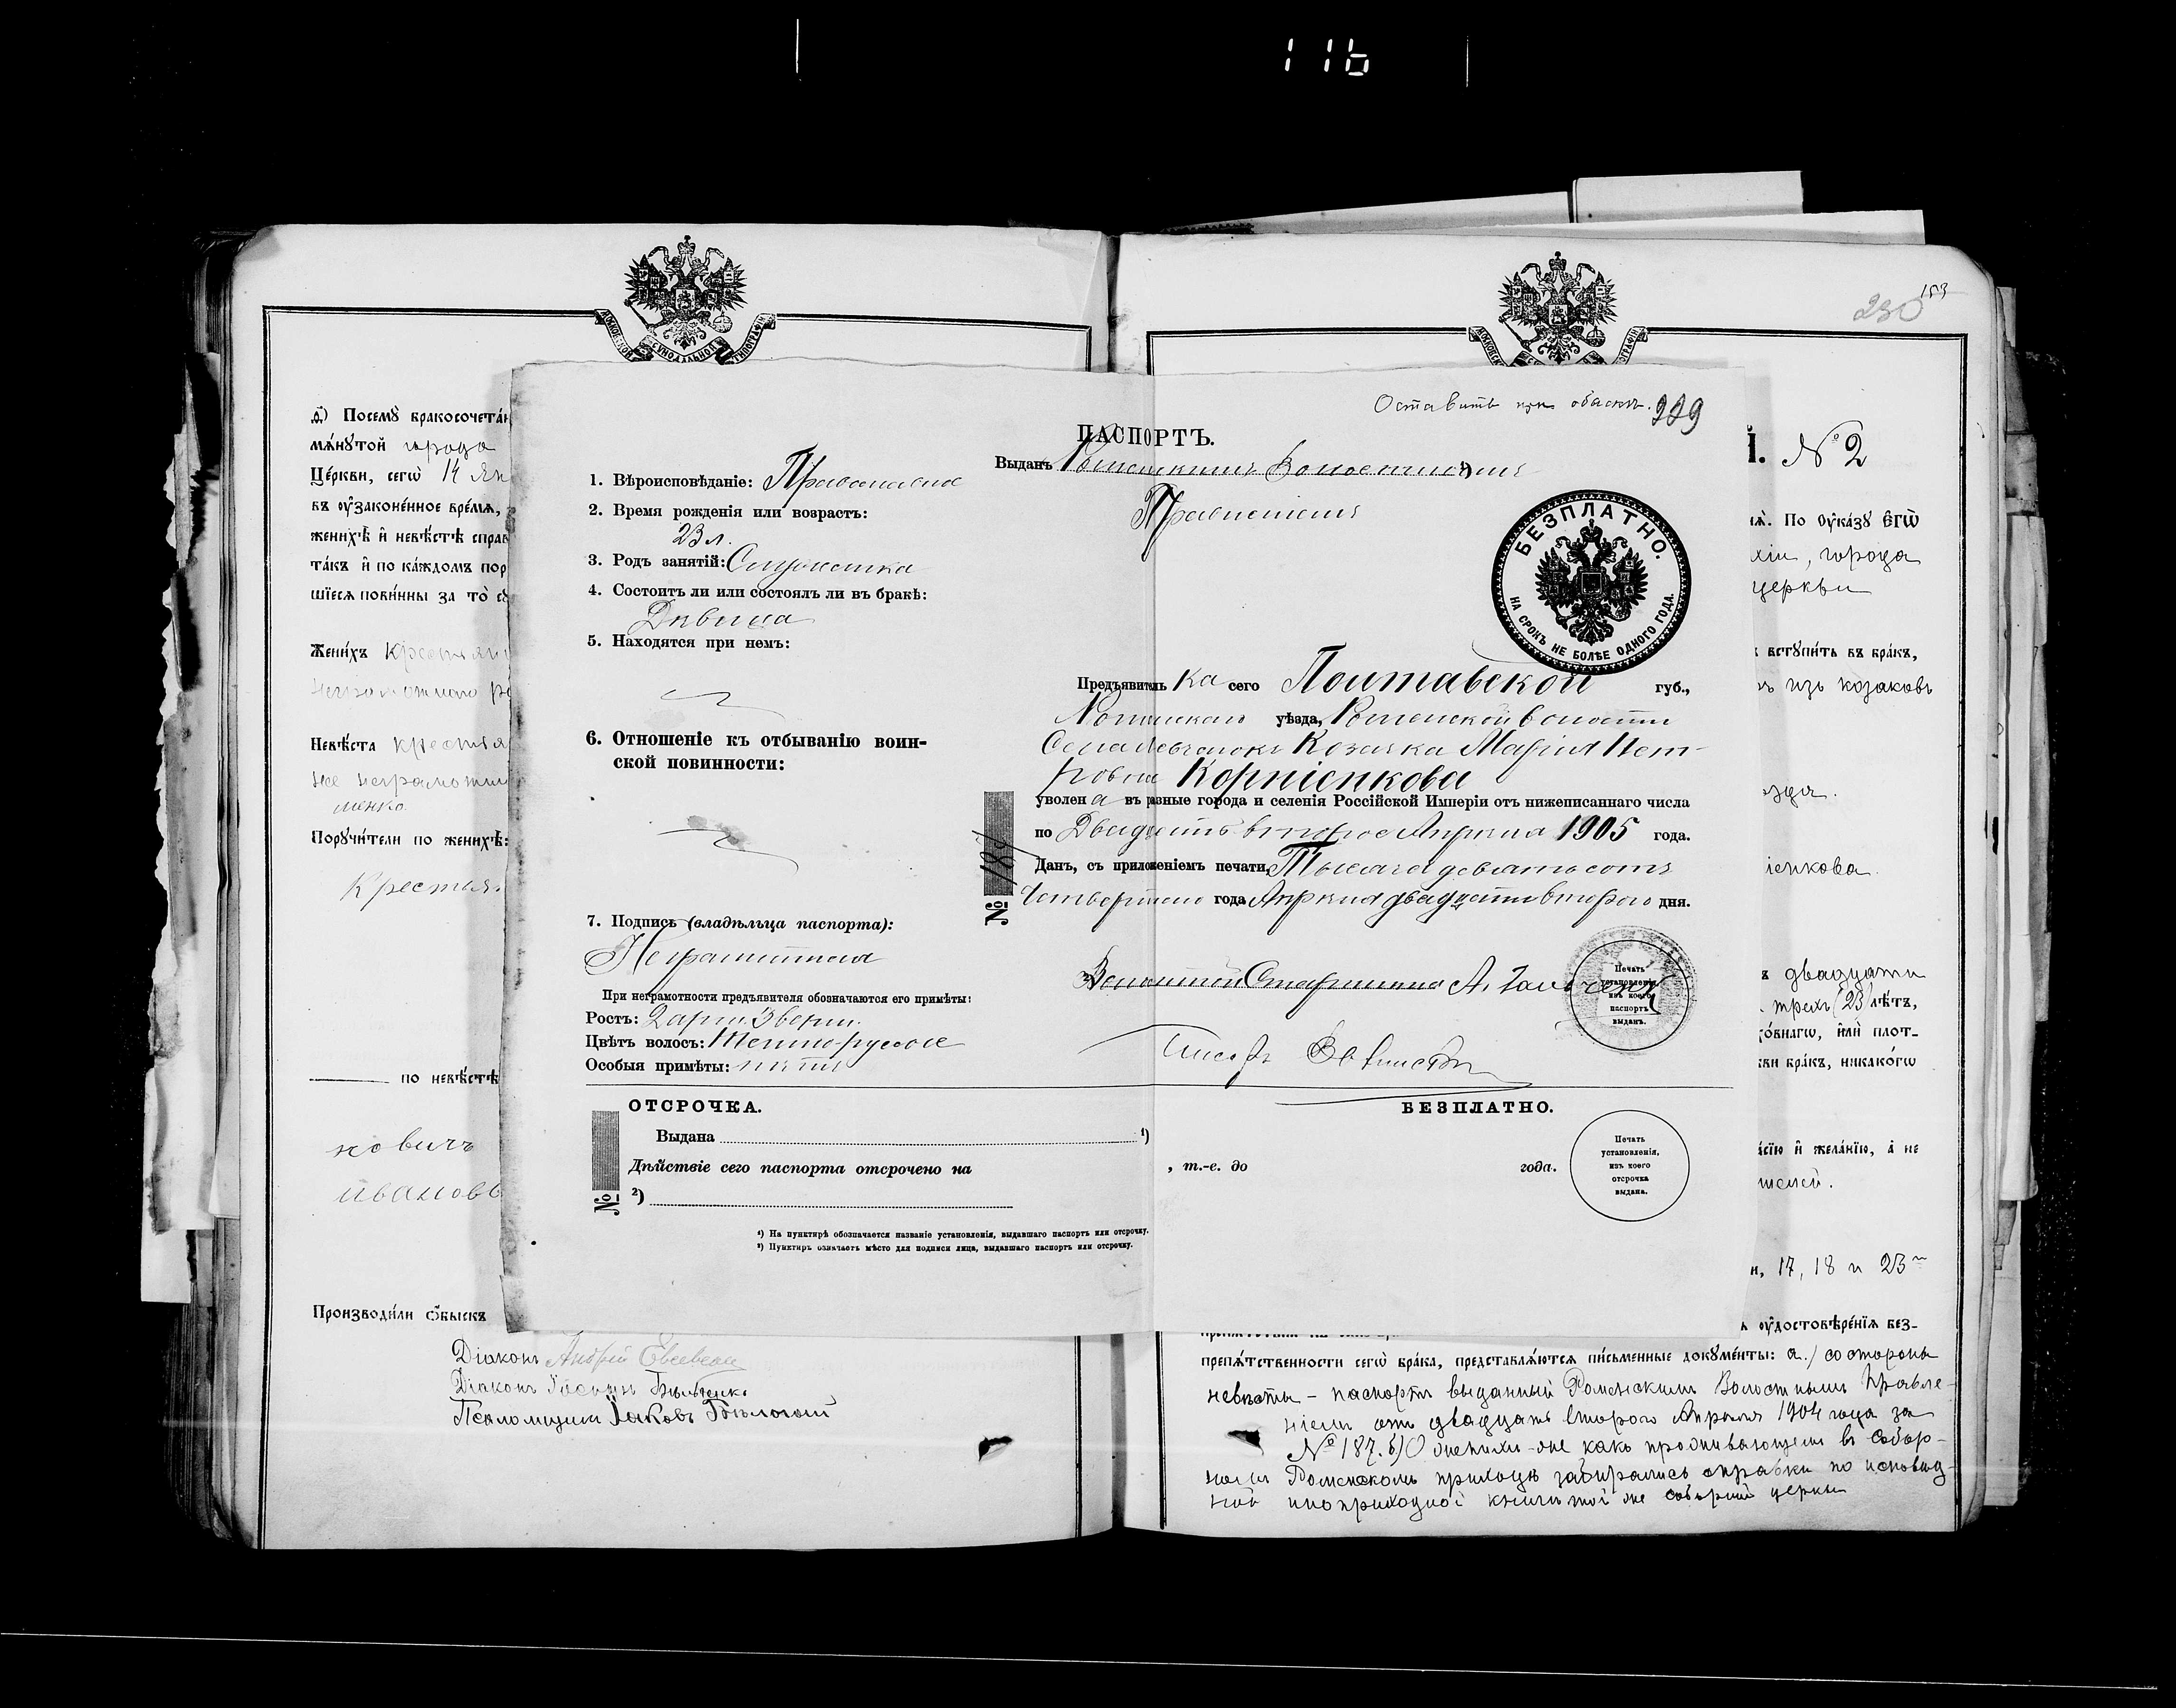 116
МОСКОВСКОЙ СУНОДАЛЬНОЙ ТИПОГРАФІИ
д҃) Посемꙋ бракосочета́н
мѧ́нꙋтой города
Це́ркви, сегѡ̀ 14 Ян
въ ѹ҆зако́ненное вре́мѧ,
женихѣ̀ и҆ невѣ́стѣ справ
та́къ и҆ по ка́ждомъ пор
шїесѧ пови́нны за то̀ сꙋ
Жени́хъ крестьяни
Невѣ́ста крестья
не неграмотн
менко
Порꙋчи́тели по женихѣ̀:
Крестья
по невѣ́стѣ
новичъ
Иванов
Производи́ли ѻ҆́быскъ
Діаконъ Андрей
Діаконъ
Псаломщикъ Іаковъ
Оставить при обыскѣ. 229
ПАСПОРТЪ.
Выданъ Роменскимъ Волостнымъ ¹)
Правленіемъ
1. Вѣроисповѣданіе: Православная
2. Время рожденія или возрастъ:
23 л.
3. Родъ занятій: Служанка
4. Состоитъ ли или состоялъ ли въ бракѣ:
Дѣвица
5. Находятся при немъ:
6. Отношеніе къ отбыванію воин-
ской повинности:
7. Подпись (владѣльца паспорта):
Неграмотная
При неграмотности предъявителя обозначаются его примѣты:
Ростъ: 2 арш. 3 верш.
Цвѣтъ волосъ: Темнорусые
Особыя примѣты: нѣтъ
БЕЗПЛАТНО.
НА СРОКЪ НЕ БОЛѢЕ ОДНОГО ГОДА.
Предъявитель ка сего Полтавской губ.,
Роменскаго уѣзда, Роменской волости
Села Козачка Марія Пет-
ровна Корніенкова
уволена въ разные города и селенія Россійской Имперіи отъ нижеписаннаго числа
по Двадцать второе Апрѣля 1905 года.
Данъ, съ приложеніемъ печати, Тысяча девятьсотъ
четвертаго года Апрѣля двадцать второго дня.
№ 187
Волостной Старшина А.
Писарь
Печать
установленія,
изъ коего
паспортъ
выданъ.
ОТСРОЧКА.
БЕЗПЛАТНО.
Выдана ¹)
Дѣйствіе сего паспорта отсрочено на , т.-е. до года.
№
²)
Печать
установленія,
изъ коего
отсрочка
выдана.
¹) На пунктирѣ обозначается названіе установленія, выдавшаго паспортъ или отсрочку.
²) Пунктиръ означаетъ мѣсто для подписи лица, выдавшаго паспортъ или отсрочку.
МОСКОВСКОЙ
230
І. № 2
По ѹ҆ка́зꙋ є҆гѡ̀
хіи, города
церкви
встꙋпи́ть въ бра́къ,
изъ козаковъ
ѣзда.
іенкова.
двадцати
трехъ (23) лѣ́тъ,
ко́внагѡ, и҆лѝ пло́т-
бра́къ, никако́гѡ
а́сїю и҆ жела́нїю, а҆ не
телей.
и, 17, 18 и 23
ѹ҆достовѣре́нїѧ без-
препѧ́тственности сегѡ̀ бра́ка, представлѧ́ютсѧ пи́сьменные докꙋме́нты: а.) со стороны
невѣсты – паспортъ выданный Роменскимъ Волостнымъ Правле-
ніемъ отъ двадцать второго Апрѣля 1904 года за
№ 187. б) О женихѣ-же какъ проживающемъ въ Собор-
номъ Роменскомъ приходѣ забирались справки по исповѣд-
ной приходной книгѣ той же соборной церкви